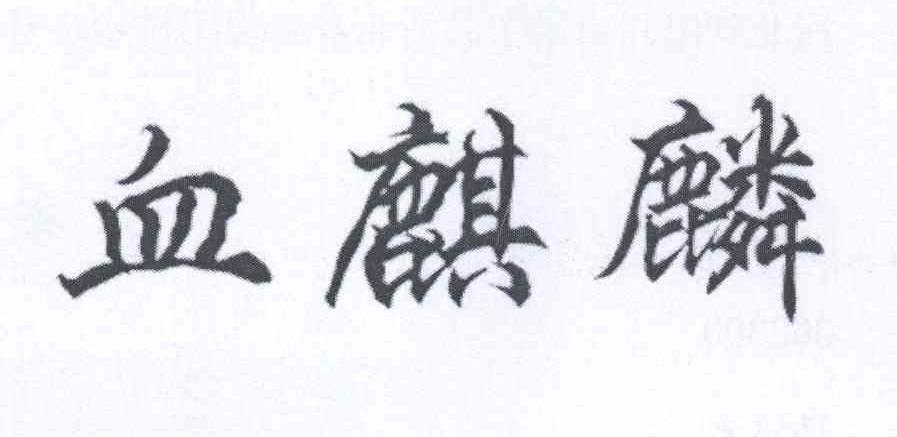 血麒麟